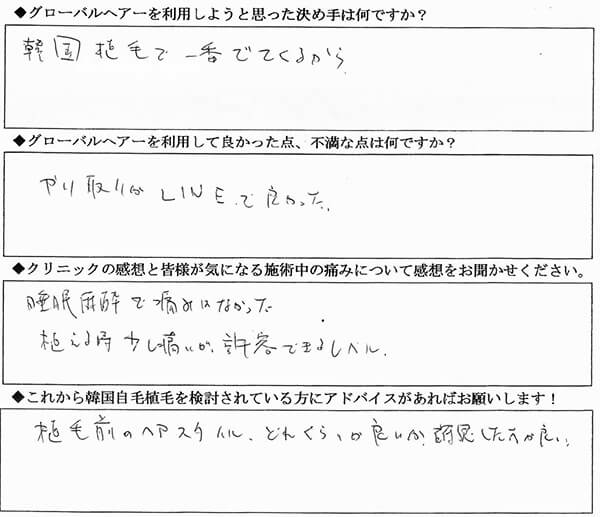 ◆グローバルヘアーを利用しようと思った決め手は何ですか？
韓国 植毛で 一番でてくるから
◆グローバルヘアーを利用して良かった点、不満な点は何ですか？
やり取りが LINEで良かった。
◆クリニックの感想と皆様が気になる施術中の痛みについて感想をお聞かせください。
睡眠麻酔で痛みはなかった
植える時少し痛いが、許容できるレベル。
◆これから韓国自毛植毛を検討されている方にアドバイスがあればお願いします！
植毛前のヘアスタイル、どれくらいが良いか、調整した方が良い。